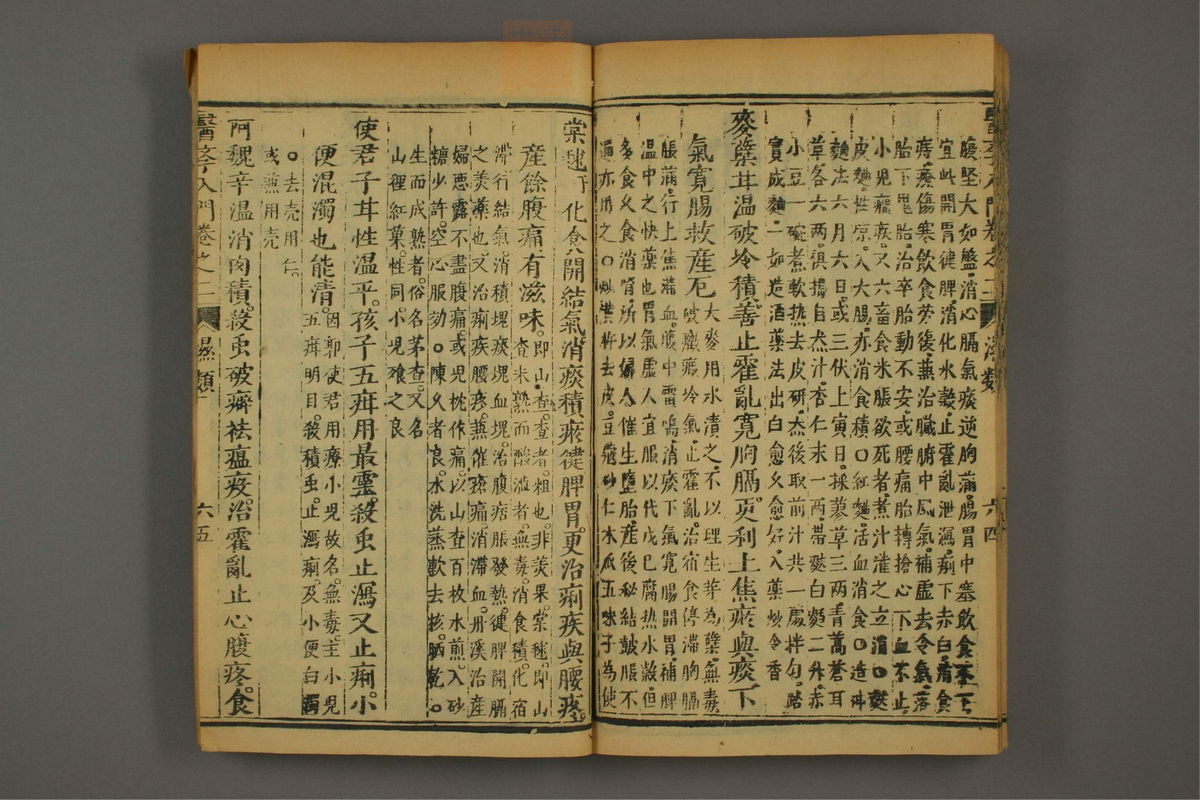 醫學入門卷之二 濕類 六四
腹堅大如盤消心膈氣痰逆胸滿腸胃中塞飲食不下
宜此開胃健脾消化水穀止霍亂泄瀉痢下赤白消食
痔瘻傷寒飲食勞後兼治臟腑中風氣補虛去冷氣落
胎下鬼胎治卒胎動不安或腰痛胎轉搶心下血不止
小兒癇疾又六畜食米脹欲死者煮汁灌之立消○麩
皮麵性凉入大腸亦消食積○紅麵活血消食○造神
麯法六月六日或三伏上寅日採蓼草三兩青蒿蒼耳
草各六兩俱搗自然汁杏仁末一兩帶麩白麵二升赤
小豆一碗煮軟熱去皮研然後取前汁共一處拌勻踏
實成麵一如造酒藥法出白愈久愈好入藥炒令香
麥蘗甘温破冷積善止霍亂寬胸膈更利上焦瘀與痰下
氣寬腸救產厄
大麥用水漬之不以理生芽為蘗無毒
破癥癖冷氣止霍亂治宿食停滯胸膈
脹滿行上焦滯血腹中雷鳴消痰下氣寬腸開胃補脾
温中之快藥也胃氣虛人宜服以代戊巳腐熱水穀但
多食久食消腎所以婦人催生墮胎產後秘結鼓脹不
通亦用之○炒黃杵去皮豆蔻砂仁木瓜五味子為使
棠毬子化食開結氣消痰積瘀健脾胃更治痢疾與腰疼
產餘腹痛有滋味
即山查查者粗也非美果棠毬即山
查未熟而酸澁者無毒消食積化宿
滯行結氣消積塊痰塊血塊治腹痞脹發熱健脾開膈
之美藥也又治痢疾腰疼兼催瘡痛消滯血丹溪治產
婦惡露不盡腹痛或兒枕作痛以山查百枚水煎入砂
糖少許空心服効○陳久者良水洗蒸軟去核晒乾○
生而成熟者俗名茅查又名
山裡紅菓性同小兒飱之良
使君子甘性温平孩子五疳用最靈殺虫止瀉又止痢小
便混濁也能清
因郭使君用療小兒故名無毒主小兒
五疳明目殺積虫止瀉痢及小便白濁
○去壳用仁
或兼用壳
阿魏辛温消肉積殺虫破癖袪瘟疫治霍亂止心腹疼食
醫學入門卷之二 濕類 六五